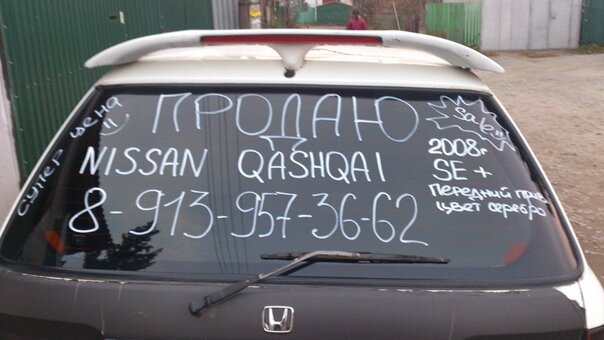 супер цена !!
ПРОДАЮ
Sale!!
NISSAN QASHQAI
8-913-957-36-62
2008г
SE +
Передний прив
цвет серебро